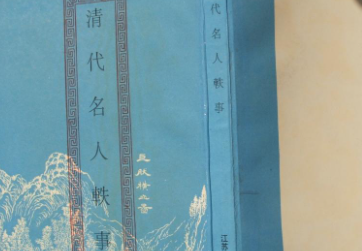 清代名人軼事
代名人軼事
江